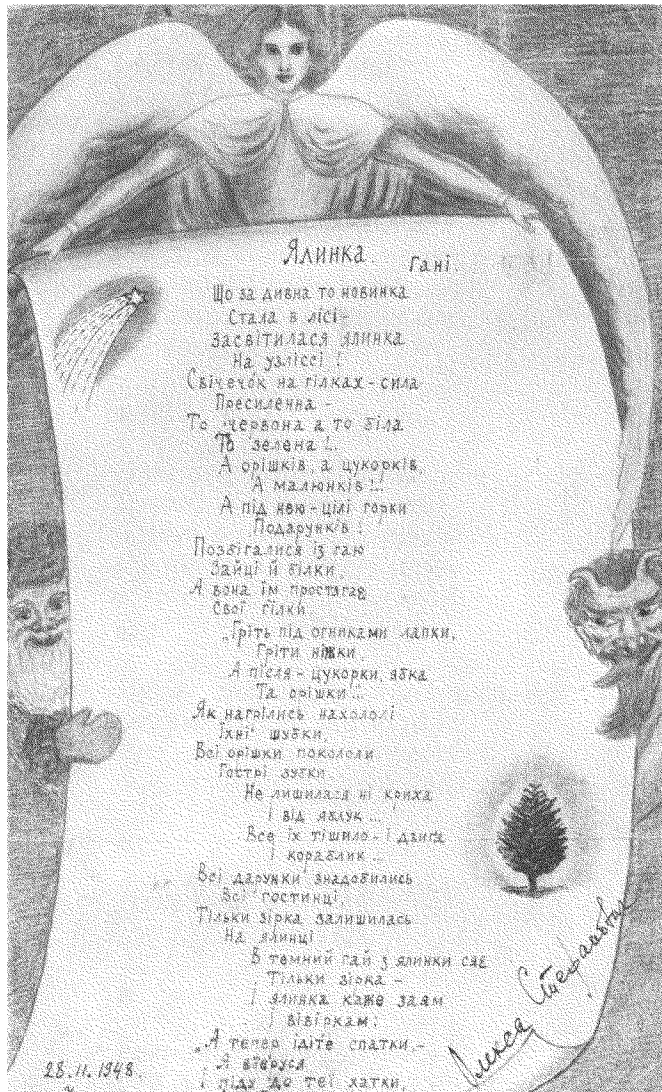 Ялинка
Гані.
Що за дивна то новинка
Стала в лісі –
Засвітилася ялинка
На узліссі !
Свічечок на гілках – сила
Пресиленна –
То червона а то біла
То зелена !..
А орішків, а цукорків,
А малюнків !..
А під нею – цілі горки
Подарунків !
Позбігалися із гаю
Зайці й білки
А вона їм простягає
Свої гілки.
„Гріть під огниками лапки,
Гріти ніжки
А після – цукорки, ябка
Та орішки"...
Як нагрілись нахололі
Їхні шубки,
Всі орішки покололи
Гострі зубки
Не лишилася ні криха
І від яблук ...
Все їх тішило – і дзиґа
І кораблик ...
Всі дарунки знадобились
Всі гостинці,
Тільки зірка залишилась
На ялинці
В темний гай з ялинки сяє
Тільки зірка –
І ялинка каже заям
І вівіркам:
„А тепер ідіте спатки, –
А я
І піду до теї хатки,
28.11.1948.
Олекса Стефанович